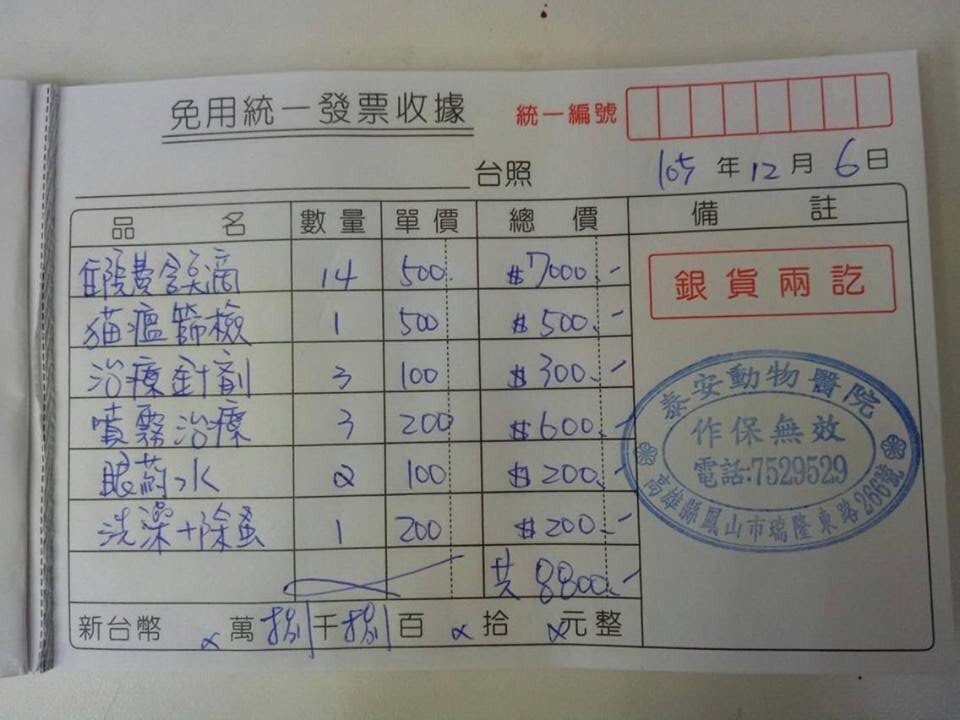 免用統一發票收據
統一編號
台照
105年12月6日
品名 數量 單價 總價 備註
住院費含点滴 14 500 $7000.-
猫瘟篩檢 1 500 $500.-
治療針劑 3 100 $300.-
噴霧治療 3 200 $600.-
眼葯水 2 100 $200.-
洗澡+除蚤 1 200 $200.-
共8800.-
新台幣 萬捌千捌百 拾 元整
銀貨兩訖
泰安動物醫院
作保無效
電話:7529529
高雄縣鳳山市瑞隆東路266號